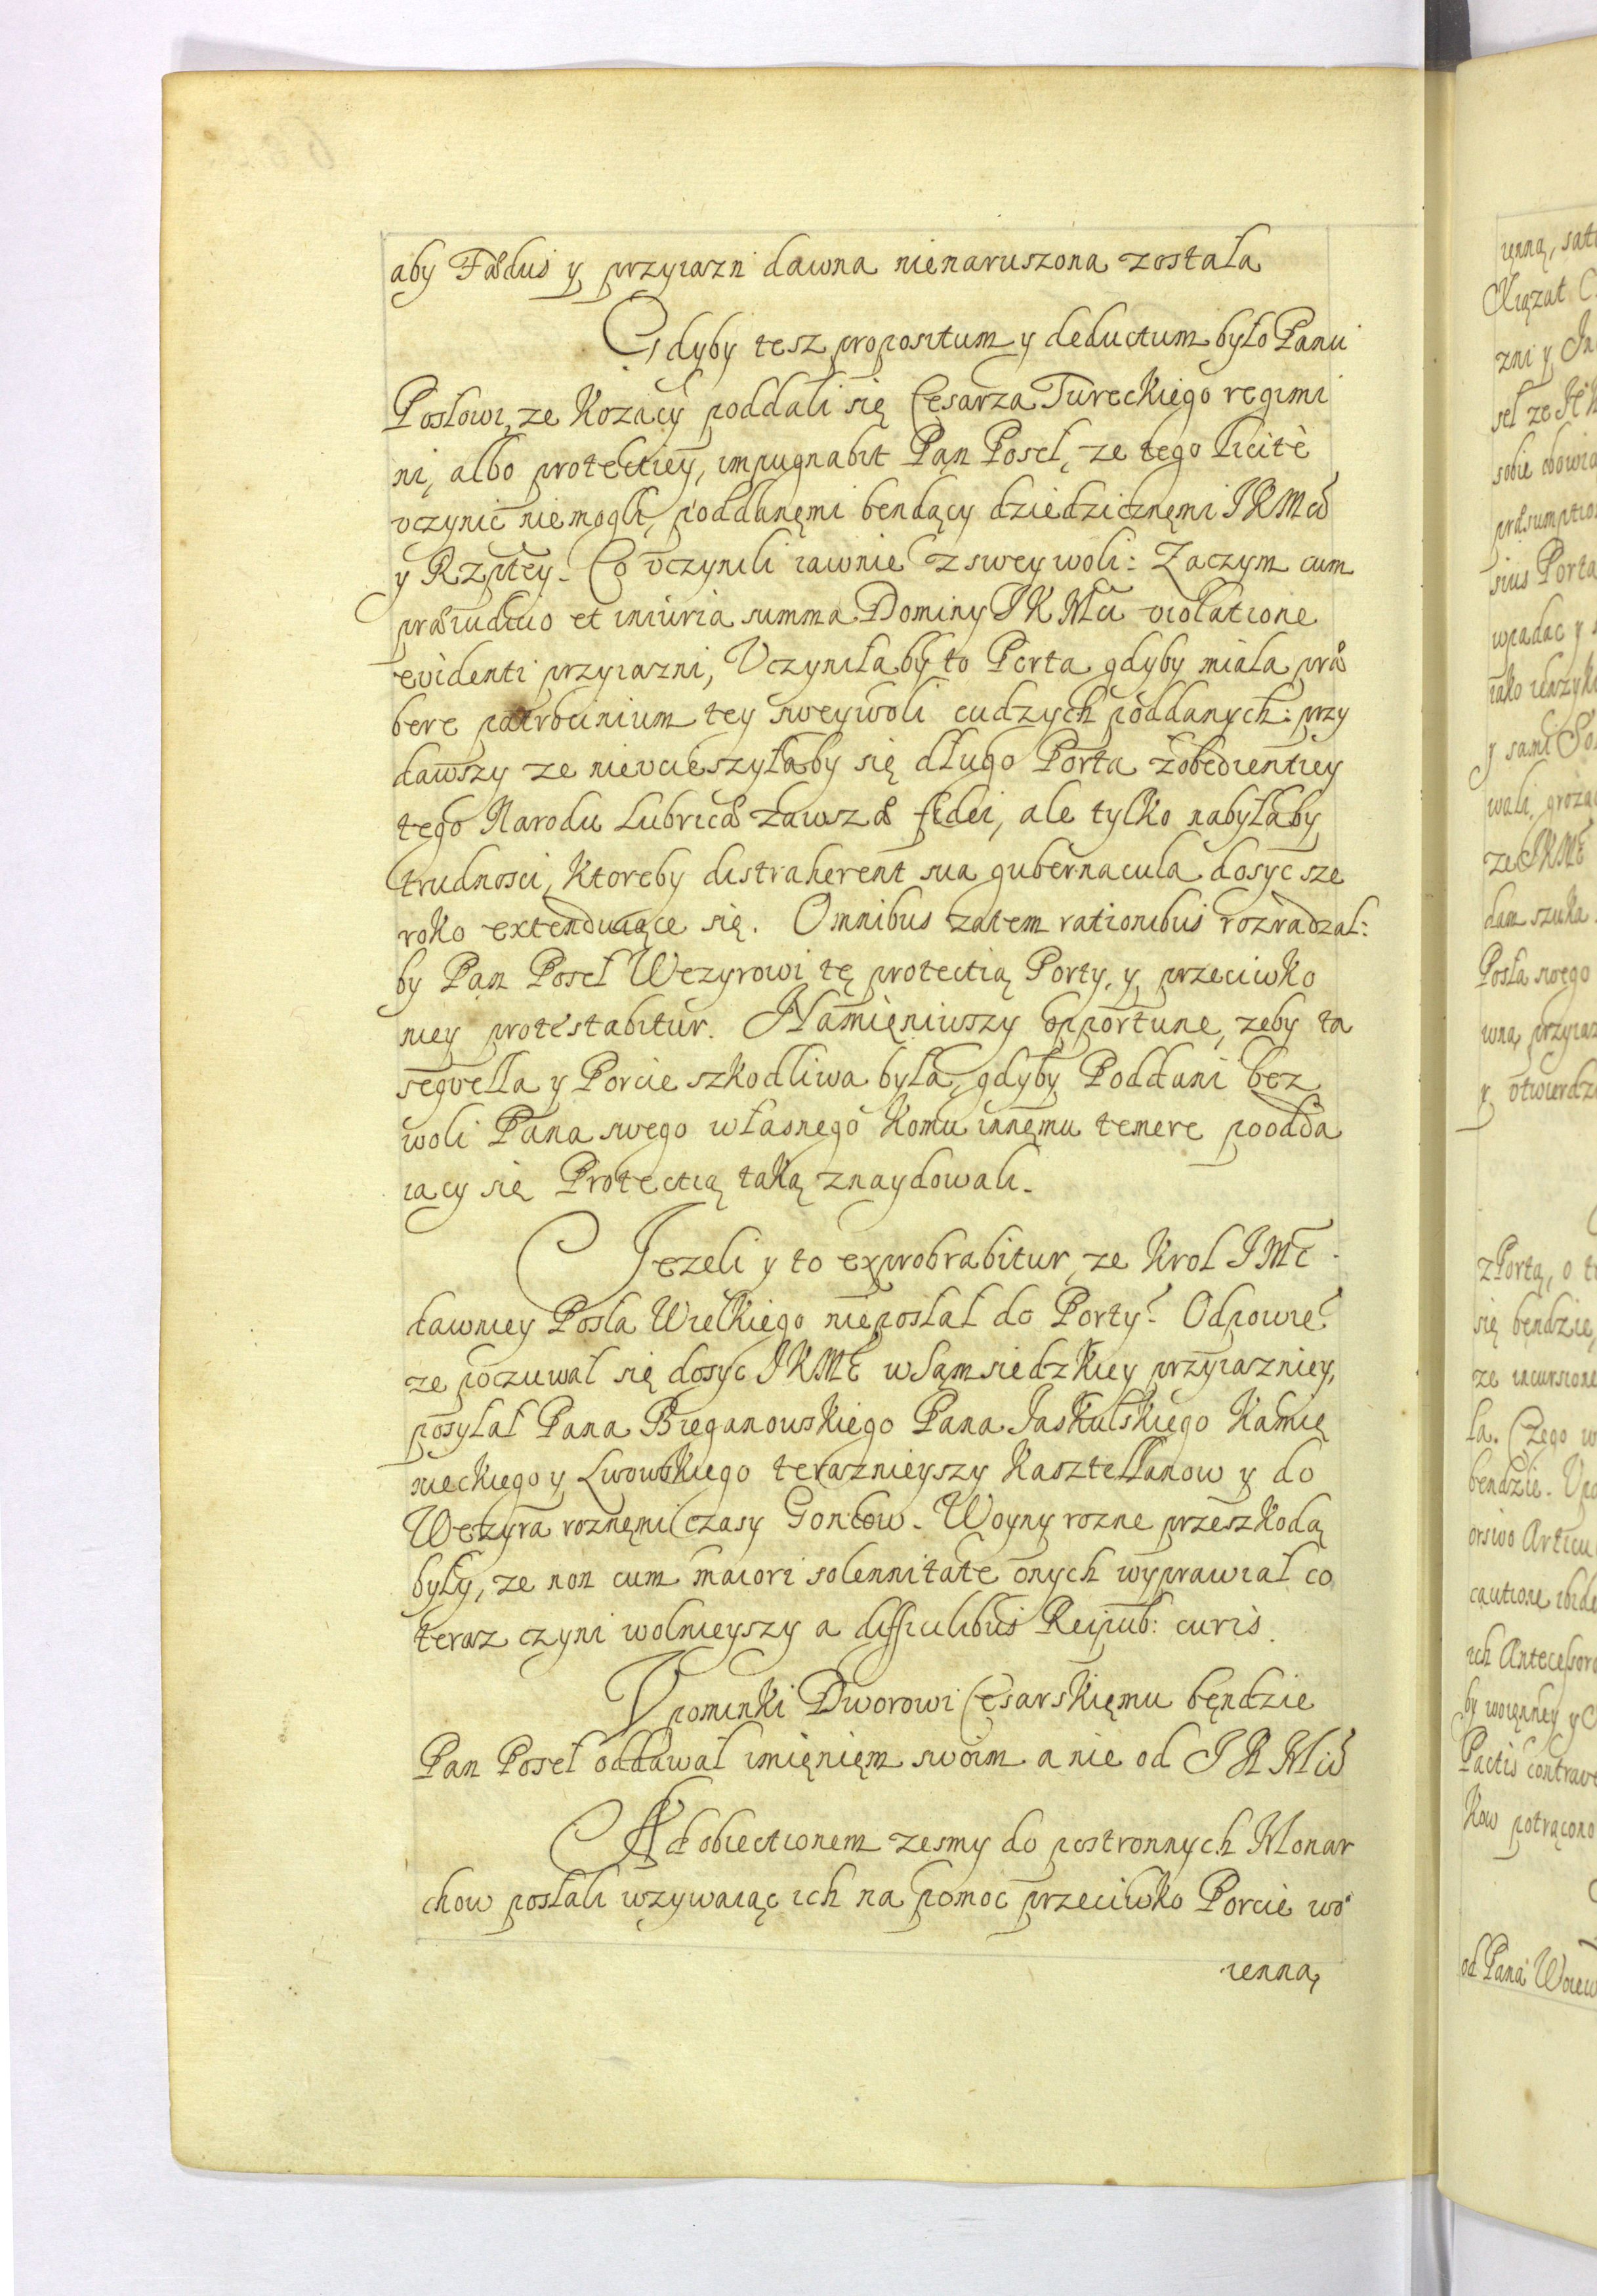 aby Fædus y przyiazn dawna nienaruszona została
Gdyby tesz propositum y deductum było Panu
Posłowi, ze Kozacy poddali się Cesarza Tureckiego regimi
ni, albo protectiey, impugnabit Pan Poseł, ze tego licitè
vczynic niemogli, poddanęmi bendący dziedzicznęmi JKMci
y Rzptey. Co vczynili iawnie z swey woli: Zaczym cum
præiudicio et iniuria summa Dominy JKMci violatione
evidenti przyiazni, Vczyniłaby to Porta gdyby miała præ
bere patrocinium tey sweywoli cudzych poddanych: przy
dawszy ze nievcieszyłaby się długo Porta z obedientiey
tego Narodu Lubricæ zawszæ fidei, ale tylko nabyłaby
trudnosci, Ktoreby distraherent sua gubernacula dosyc sze
roko extenduiące się. Omnibus zatem rationibus rozradzał:
by Pan Poseł Wezyrowi tę protectią Porty, y przeciwko
niey protestabitur. Namięniwszy opportune, zeby ta
seqvella y Porcie szkodliwa była, gdyby Poddani bez
woli Pana swego własnego Komu innęmu temere poodda
iący się Protectią taką znaydowali.
Jezeli y to exprobrabitur, ze Krol JMć
dawniey Posła Wielkiego nieposłał do Porty? Odpowie?
ze poczuwał się dosyc JKMć w Sąmsiedzkiey przyiazniey,
posyłał Pana Bieganowskiego Pana Jaskulskiego Kamię
nieckiego y Lwowskiego terazniejszy Kasztellanow y do
Wezyra roznęmi czasy Goncow. Woyny rozne przeszkodą
były, ze non cum maiori solennitate onych wyprawiał co
teraz czyni wolnieyszy a difficilibus Reipub: curis.
Vpominki Dworowi Cęsarskięmu bęndzie
Pan Poseł oddawał imięnięm swoim a nie od JKMći
Ad obiectionem zesmy do postronnych Monar
chow posłali wzywaiąc ich na pomoc przeciwko Porcie wo
ienną,